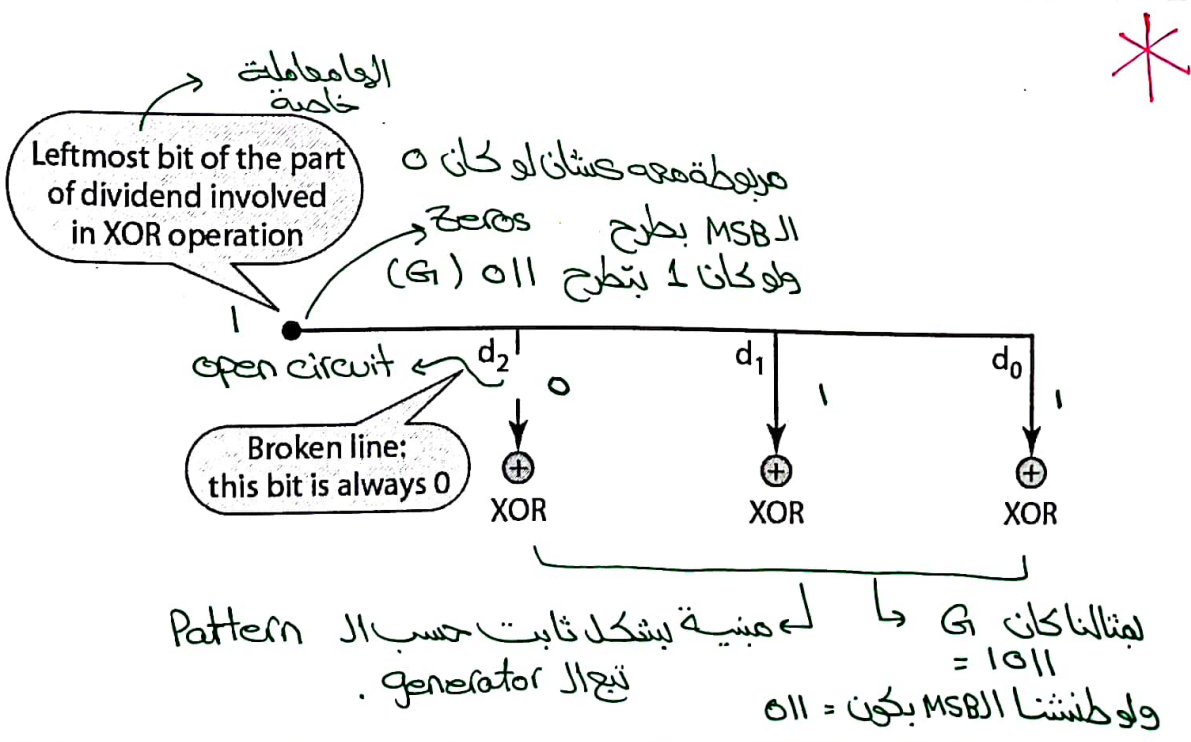 الها معاملة
خاصة
Leftmost bit of the part
of dividend involved
in XOR operation
مربوطة معه عشان لو كان 0
الـ MSB بطرح zeros
ولو كان 1 بتطرح 011 (G)
1
open circuit
d2
0
d1
1
d0
1
Broken line:
this bit is always 0
XOR
XOR
XOR
مبنية بشكل ثابت حسب الـ Pattern
تبع الـ generator .
بمثالنا كان G
= 1011
ولو طنشنا الـ MSB بكون = 011